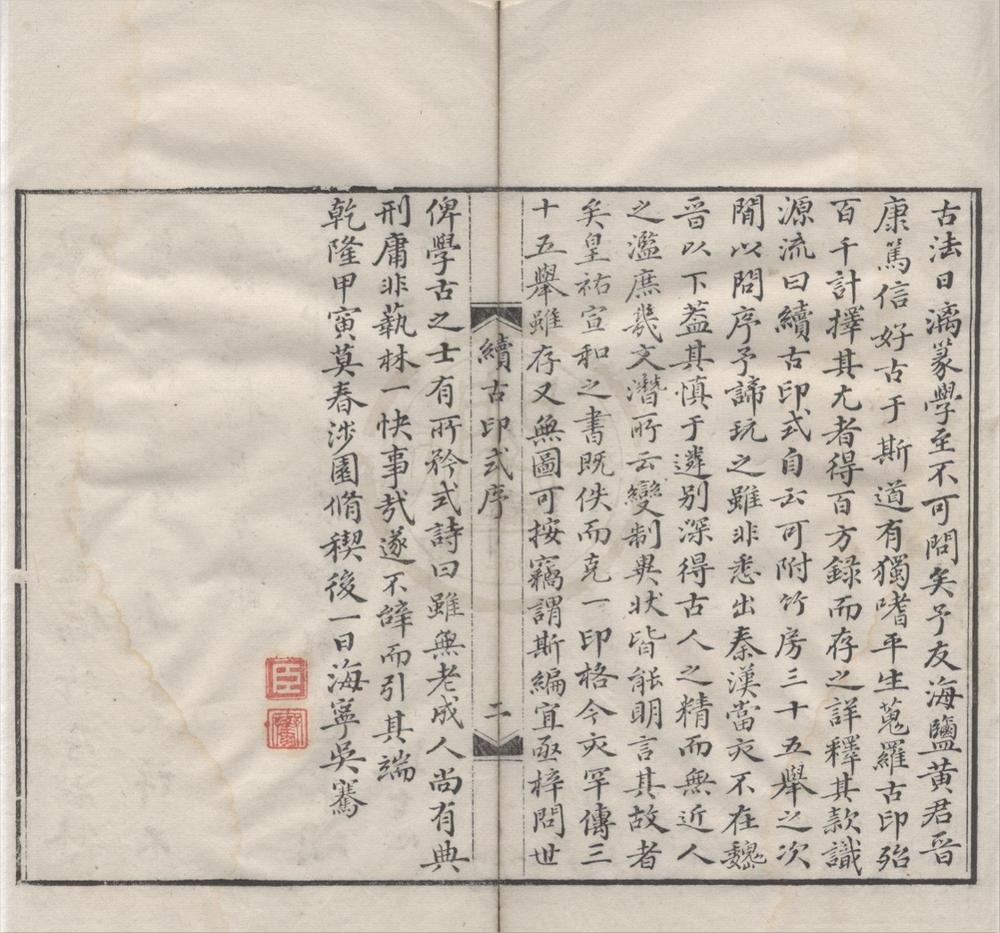 古法日漓篆學至不可問矣予友海鹽黃君晉
康篤信好古于斯道有獨嗜平生蒐羅古印殆
百千計擇其尤者得百方錄而存之詳釋其款識
源流曰續古印式自云可附竹房三十五舉之次
閒以問序予諦玩之雖非悉出秦漢當亦不在魏
晉以下蓋其慎于遴別深得古人之精而無近人
之濫庶幾文潛所云變制異狀皆能明言其故者
矣皇祐宣和之書既佚而克一印格今亦罕傳三
十五舉雖存又無圖可按竊謂斯編宜亟梓問世
續古印式序
二
俾學古之士有所矜式詩曰雖無老成人尚有典
刑庸非蓺林一快事哉遂不辭而引其端
乾隆甲寅莫春涉園脩稧後一日海寧吳騫
臣
騫